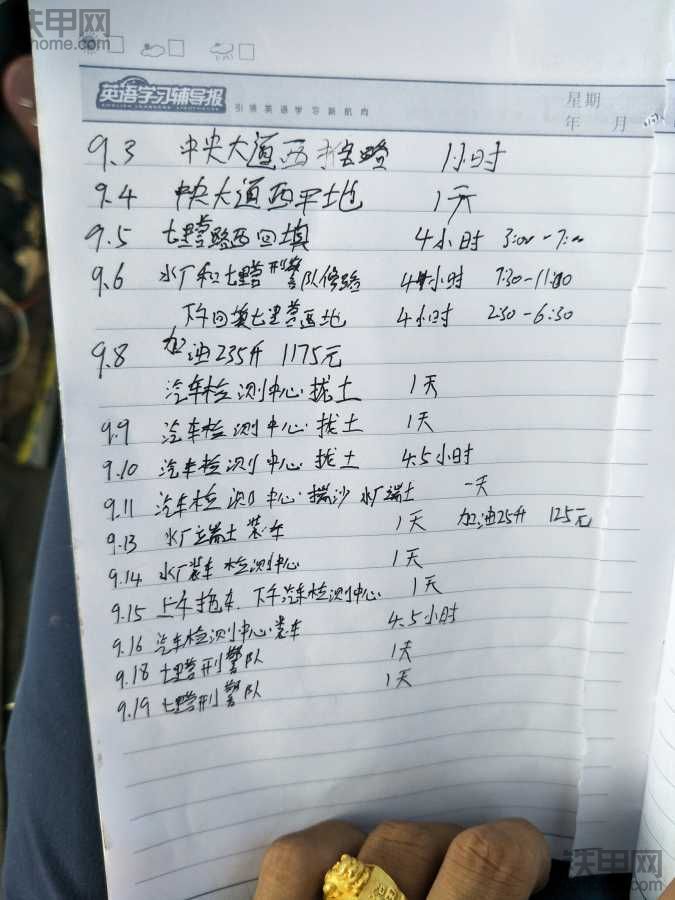 铁甲网
home.com
英语学习辅导报
引领英语学习新航向
星期
年 月
9.3 中央大道西 路 1小时
9.4 中央大道西平地 1天
9.5 七里营路西回填 4小时 3:00-7:00
9.6 水厂和七里营刑警队修路 4小时 7:30-11:30
下午回填七里营西地 4小时 2:30-6:30
9.8 加油235升 1175元
汽车检测中心拢土 1天
9.9 汽车检测中心拢土 1天
9.10 汽车检测中心拢土 4.5小时
9.11 汽车检测中心 沙 水厂 土 一天
9.13 水厂 土装车 1天 加油25升 125元
9.14 水厂装车 检测中心 1天
9.15 上午拖车.下午汽车检测中心 1天
9.16 汽车检测中心装车 4.5小时
9.18 七里营刑警队 1天
9.19 七里营刑警队 1天
铁甲网
cehome.com